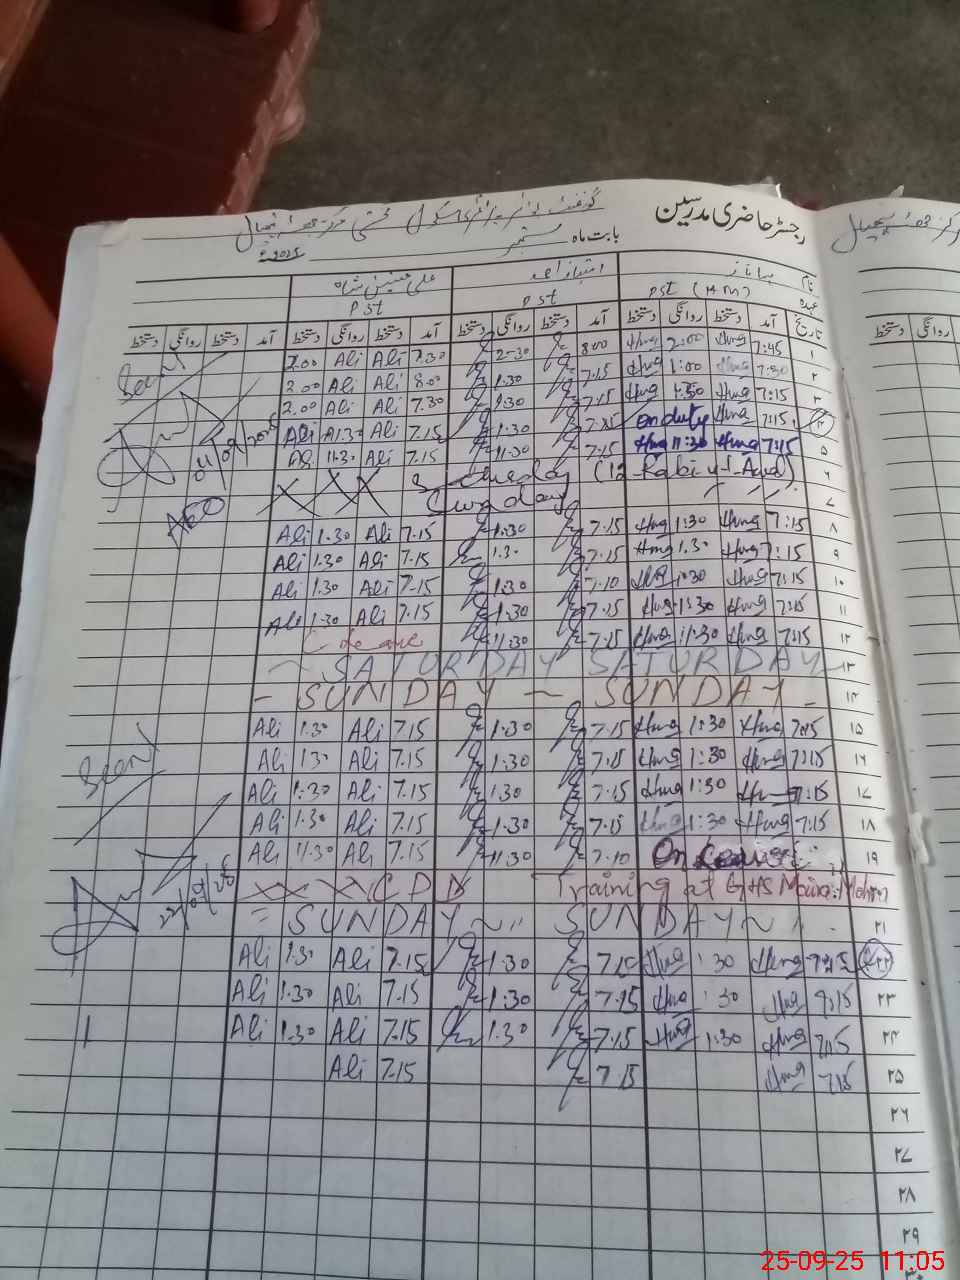 رجسٹر حاضری مدرسین
بابت ماہ ستمبر 2025ء
نام امتیاز احمد
عہدہ PST (HM) PST PST
تاریخ آمد دستخط روانگی دستخط آمد دستخط روانگی دستخط آمد دستخط روانگی دستخط آمد دستخط روانگی دستخط
۱ 7:45 Hmg 2:00 Hmg 8:00 2-30 7.30 Ali Ali 2.00
۲ 7:30 Hmg 1:00 Hmg 7.15 1:30 8:00 Ali Ali 2.00
۳ 7:15 Hmg 1:30 Hmg 7.15 1:30 7.30 Ali Ali 2.00
۴ 7:15 Hmg on duty 7.15 1:30 7.15 Ali 1.30 Ali
۵ 7:15 Hmg 11:30 Hmg 7.15 11:30 7.15 Ali 11.30 Ali
۶ (12-Rabi-ul-Awal)
۷
۸ 7:15 Hmg 1:30 Hmg 7.15 1:30 7.15 Ali 1.30 Ali
۹ 7:15 Hmg 1.30 Hmg 7.15 1.30 7.15 Ali 1.30 Ali
۱۰ 7:15 Hmg 1:30 Hmg 7.10 1:30 7.15 Ali 1.30 Ali
۱۱ 7:15 Hmg 1:30 Hmg 7.15 1:30 7.15 Ali 1.30 Ali
۱۲ 7:15 Hmg 11:30 Hmg 7.15 11:30 Leave
۱۳ SATURDAY SATURDAY
۱۴ SUNDAY SUNDAY
۱۵ 7:15 Hmg 1:30 Hmg 7.15 1:30 7.15 Ali 1.30 Ali
۱۶ 7:15 Hmg 1:30 Hmg 7.15 1:30 7.15 Ali 1.30 Ali
۱۷ 7:15 Hmg 1:30 Hmg 7.15 1:30 7.15 Ali 1.30 Ali
۱۸ 7:15 Hmg 1:30 Hmg 7.15 1:30 7.15 Ali 1.30 Ali
۱۹ On Leave 7.10 11:30 7.15 Ali 11.30 Ali
CPD Training at GHS
۲۱ SUNDAY SUNDAY
۲۲ 7:15 Hmg 1:30 Hmg 7.15 1:30 7.15 Ali 1.30 Ali
۲۳ Hmg 1:30 Hmg 7.15 1:30 7.15 Ali 1.30 Ali
۲۴ 7:15 Hmg 1:30 Hmg 7.15 1:30 7.15 Ali 1.30 Ali
۲۵ 7:15 Hmg 7.15 7.15 Ali
۲۶
۲۷
۲۸
۲۹
Seen
04/09/2025
AEO
Seen
22/09/25
دستخط روانگی
25-09-25 11:05